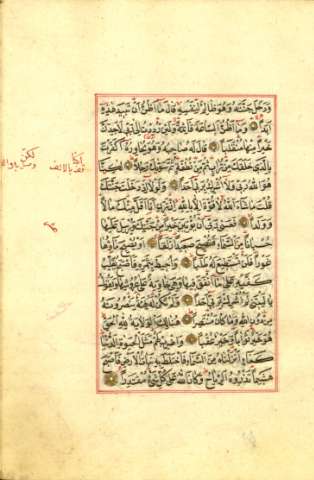 وَدَخَلَ جَنَّتَهُ وَهُوَ ظَالِمٌ لِنَفْسِهِ قَالَ مَا أَظُنُّ أَنْ تَبِيدَ هَذِهِ
أَبَدًا وَمَا أَظُنُّ السَّاعَةَ قَائِمَةً وَلَئِنْ رُدِدْتُ إِلَى رَبِّي لَأَجِدَنَّ
خَيْرًا مِنْهَا مُنْقَلَبًا قَالَ لَهُ صَاحِبُهُ وَهُوَ يُحَاوِرُهُ أَكَفَرْتَ
بِالَّذِي خَلَقَكَ مِنْ تُرَابٍ ثُمَّ مِنْ نُطْفَةٍ ثُمَّ سَوَّاكَ رَجُلًا لَكِنَّا
هُوَ اللَّهُ رَبِّي وَلَا أُشْرِكُ بِرَبِّي أَحَدًا وَلَوْلَا إِذْ دَخَلْتَ جَنَّتَكَ
قُلْتَ مَا شَاءَ اللَّهُ لَا قُوَّةَ إِلَّا بِاللَّهِ إِنْ تَرَنِ أَنَا أَقَلَّ مِنْكَ مَالًا
وَوَلَدًا فَعَسَى رَبِّي أَنْ يُؤْتِيَنِ خَيْرًا مِنْ جَنَّتِكَ وَيُرْسِلَ عَلَيْهَا
حُسْبَانًا مِنَ السَّمَاءِ فَتُصْبِحَ صَعِيدًا زَلَقًا أَوْ يُصْبِحَ مَاؤُهَا
غَوْرًا فَلَنْ تَسْتَطِيعَ لَهُ طَلَبًا وَأُحِيطَ بِثَمَرِهِ فَأَصْبَحَ يُقَلِّبُ
كَفَّيْهِ عَلَى مَا أَنْفَقَ فِيهَا وَهِيَ خَاوِيَةٌ عَلَى عُرُوشِهَا وَيَقُولُ
يَا لَيْتَنِي لَمْ أُشْرِكْ بِرَبِّي أَحَدًا وَلَمْ تَكُنْ لَهُ فِئَةٌ يَنْصُرُونَهُ
مِنْ دُونِ اللَّهِ وَمَا كَانَ مُنْتَصِرًا هُنَالِكَ الْوَلَايَةُ لِلَّهِ الْحَقِّ
هُوَ خَيْرٌ ثَوَابًا وَخَيْرٌ عُقْبًا وَاضْرِبْ لَهُمْ مَثَلَ الْحَيَاةِ الدُّنْيَا
كَمَاءٍ أَنْزَلْنَاهُ مِنَ السَّمَاءِ فَاخْتَلَطَ بِهِ نَبَاتُ الْأَرْضِ فَأَصْبَحَ
هَشِيمًا تَذْرُوهُ الرِّيَاحُ وَكَانَ اللَّهُ عَلَى كُلِّ شَيْءٍ مُقْتَدِرًا